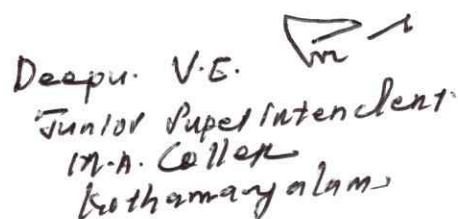 Deepu. V.E.
Junior Superintendent
M.A. College
Kothamangalam